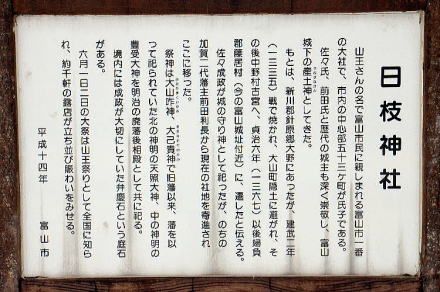 日枝神社
山王さんの名で富山市民に親しまれる富山市一番
の大社で、市内の中心部五十三ヶ町が氏子である。
佐々氏、前田氏と歴代の城主も深く崇敬し、富山
城下の産土神としてきた。
もとは、新川郡針原郷大野にあったが、建武二年
（一三三五）戦で焼かれ、大山町隠土に避がれ、そ
の後中野村古宮へ、貞治六年（一三六七）以後婦負
郡藤居村（今の富山城址付近）に、遷したと伝える。
佐々成政が城の守り神として祀ったが、のちの
加賀二代藩主前田利長から現在の社地を寄進され
ここに移った。
祭神は大山咋神、大己貴神で旧藩以来、藩を以
つて祀られていた北の神明の天照大神、中の神明の
豊受大神を明治の廃藩後相殿として共に祀る。
境内には成政が大切にしていた弁慶石という庭石
がある。
六月一日二日の大祭は山王祭りとして全国に知ら
れ、約千軒の露店が立ち並び賑わいをみせる。
平成十四年　富山市